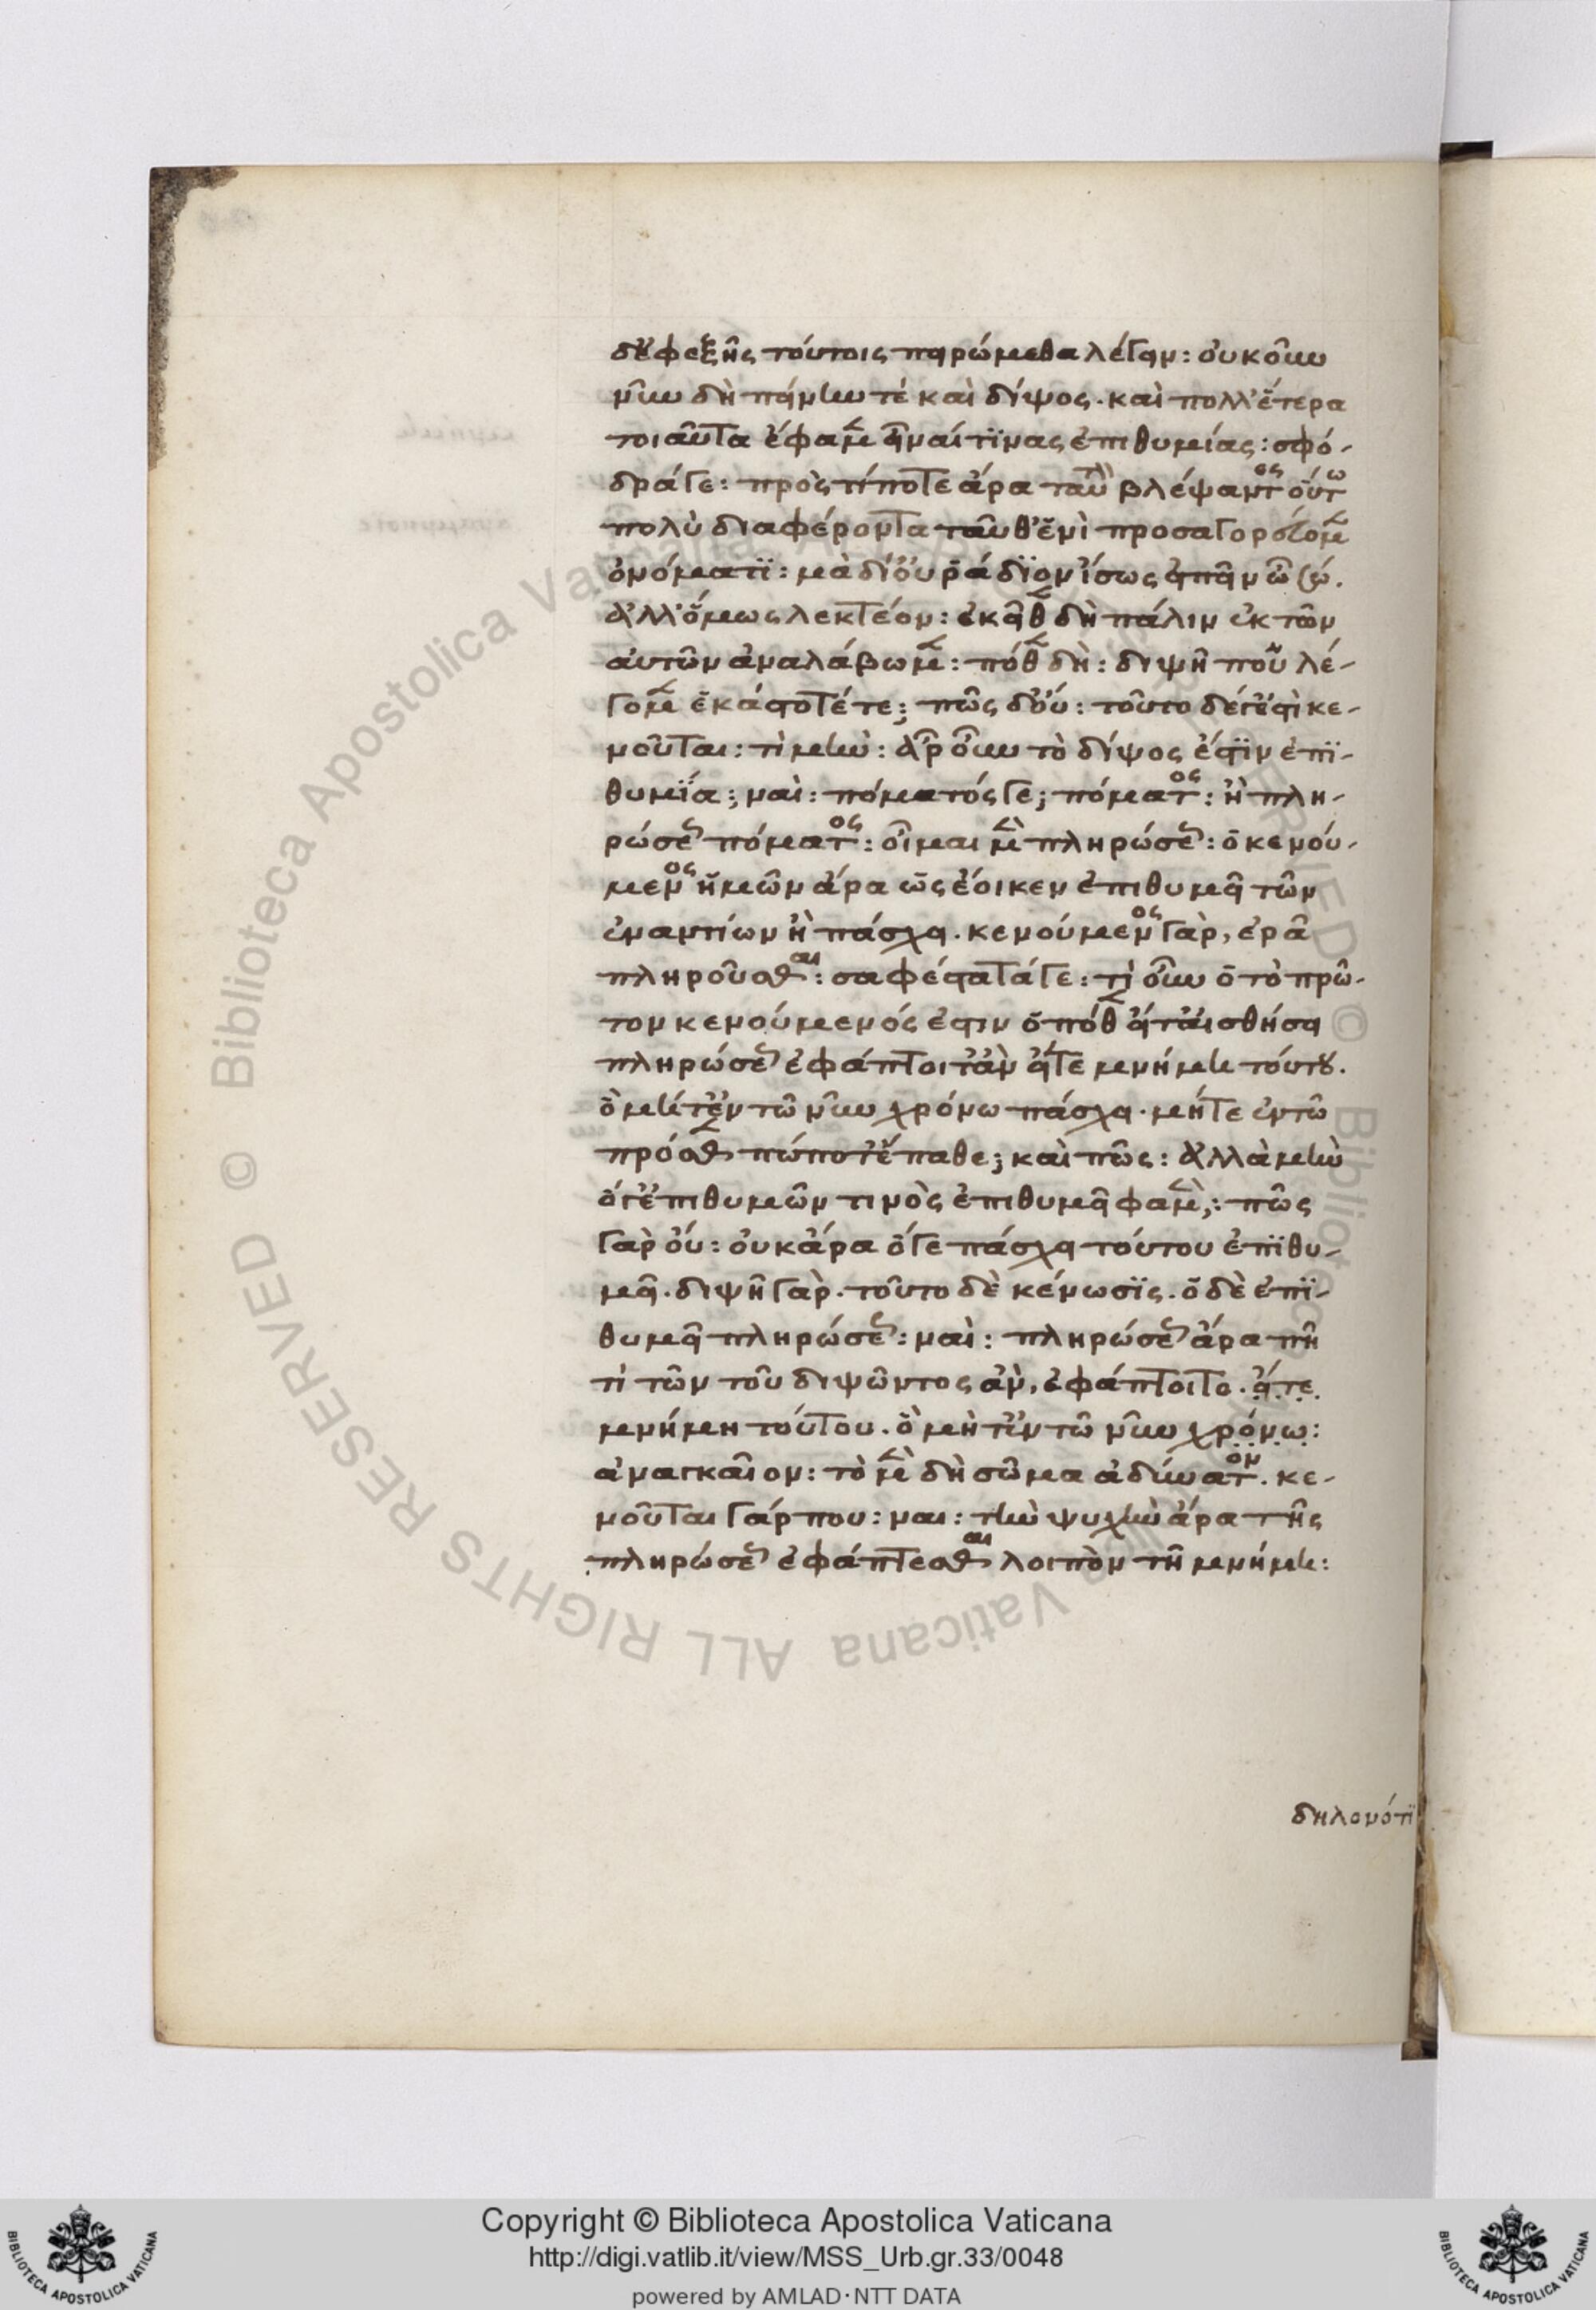 δ' ἐφεξῆς τούτοις πειρώμεθα λέγειν: οὐκοῦν
νῦν δὴ πείνην τὲ καὶ δίψος. καὶ πολλ' ἕτερα
τοιαῦτα ἔφαμεν εἶναί τινας ἐπιθυμίας: σφό-
δράγε: πρὸς τί ποτε ἄρα ταυτὸν βλέψαντος οὕτω
πολὺ διαφέροντα ταῦθ' ἑνὶ προσαγορεύομεν
ὀνόματι: μὰ δί' οὐ ῥάδιον ἴσως εἰπεῖν ὦ σώ.
ἀλλ' ὅμως λεκτέον: ἐκεῖθεν δὴ πάλιν ἐκ τῶν
αὐτῶν ἀναλάβωμεν: πόθεν δὴ: διψῆ που λέ-
γομεν ἑκάστοτέ τι; πῶς δ' οὔ: τοῦτο δέ γ' ἐστὶ κε-
νοῦται: τί μὴν: ἆρ' οὖν τὸ δίψος ἐστὶν ἐπι-
θυμία; ναὶ: πόματός γε; πόματος: ἢ πλη-
ρώσεως πόματος: οἶμαι μὲν πληρώσεως: ὁ κενού-
μενος ἡμῶν ἄρα ὡς ἔοικεν ἐπιθυμεῖ τῶν
ἐναντίων ἢ πάσχει. κενούμενος γὰρ, ἐρᾶ
πληροῦσθαι: σαφέστατά γε: τί οὖν ὁ τὸ πρῶ-
τον κενούμενός ἐστιν ὁπόθεν εἴτ' αἰσθήσει
πληρώσεως ἐφάπτοιτ' ἂν εἴτε μνήμη τούτου.
ὃ μήτ' ἐν τῶ νῦν χρόνω πάσχει. μήτε ἐν τῶ
πρόσθεν πώποτ' ἔπαθε; καὶ πῶς: ἀλλὰ μὴν
ὅ γ' ἐπιθυμῶν τινὸς ἐπιθυμεῖ φαμὲν;: πῶς
γὰρ οὔ: οὐκ ἄρα ὅ γε πάσχει τούτου ἐπιθυ-
μεῖ. διψῆ γὰρ. τοῦτο δὲ κένωσις. ὁ δὲ ἐπι-
θυμεῖ πληρώσεως: ναὶ: πληρώσεως ἄρα πῆ
τὶ τῶν τοῦ διψῶντος ἂν, ἐφάπτοιτο. εἴτε
μνήμη τούτου. ὃ μὴ τ' ἐν τῶ νῦν χρόνω:
ἀναγκαῖον: τὸ μὲν δὴ σῶμα ἀδύνατον. κε-
νοῦται γάρ που: ναι: τὴν ψυχὴν ἄρα τῆς
πληρώσεως ἐφάπτεσθαι λοιπὸν τῆ μνήμη:
δηλονότι